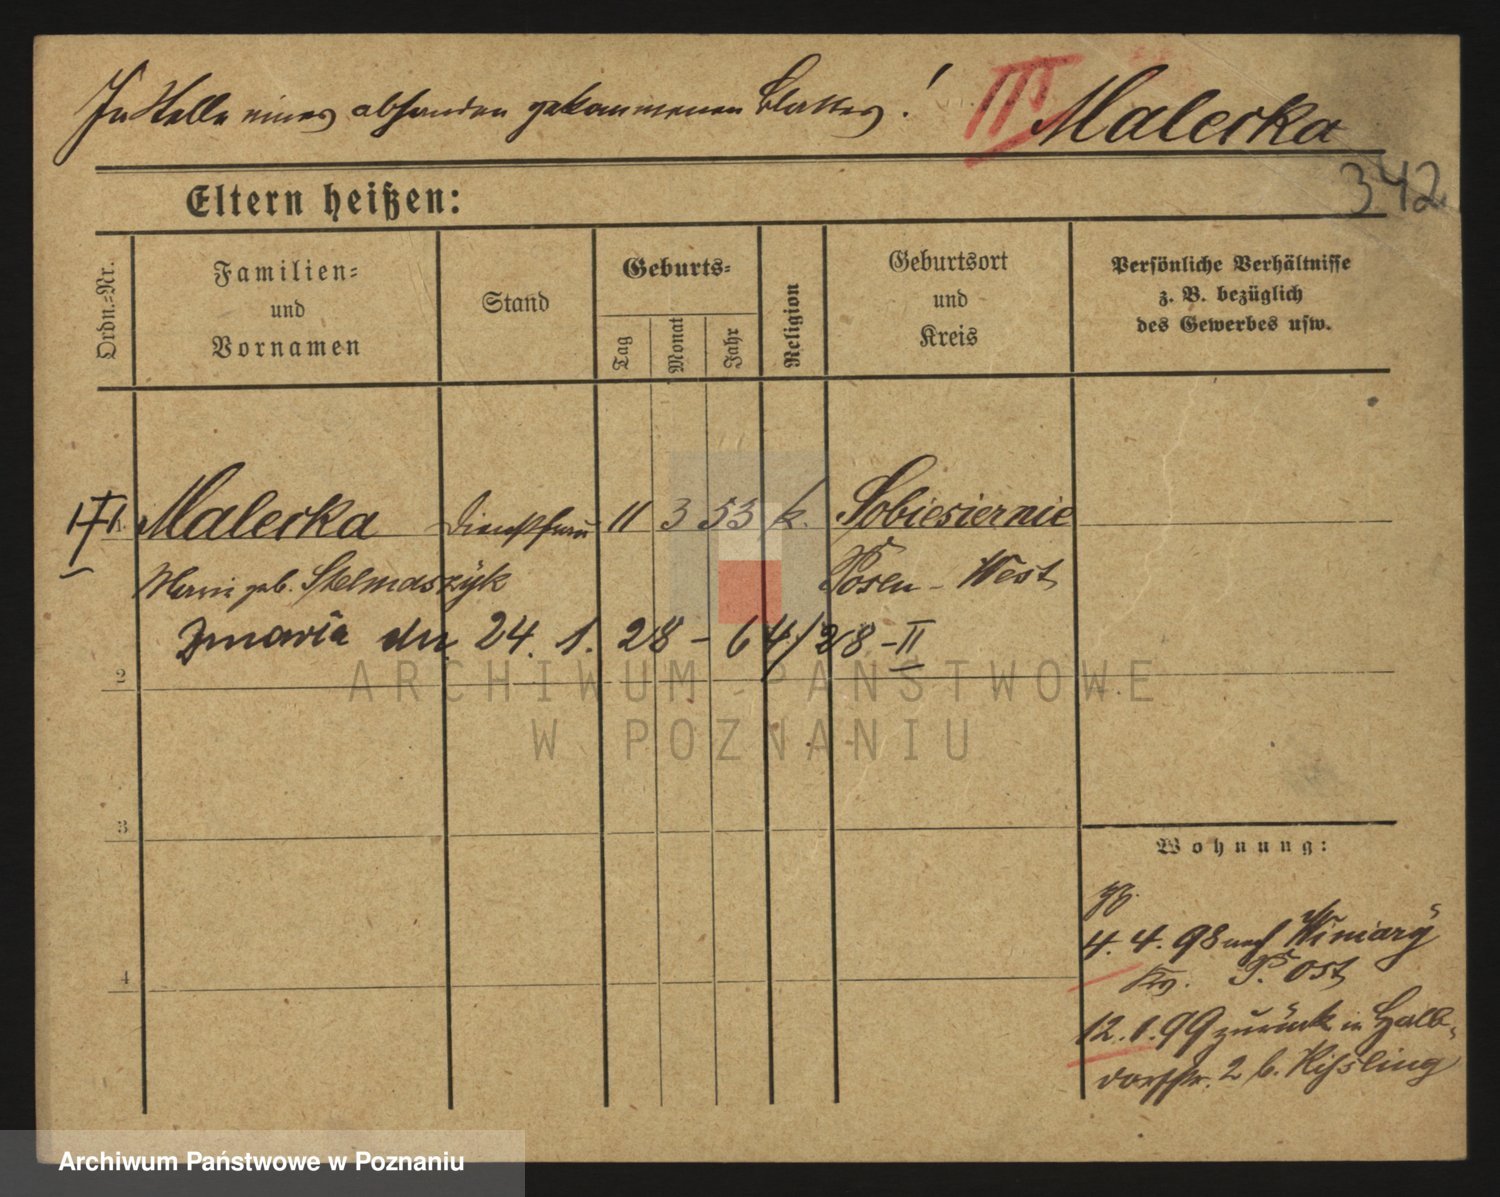 In Stelle eines abhanden gekommenen Blattes!
III Malecka
342
Eltern heißen:
Ordn.-Nr.
Familien-
und
Vornamen
Stand
Geburts-
Tag
Monat
Jahr
Religion
Geburtsort
und
Kreis
Persönliche Verhältnisse
z. B. bezüglich
des Gewerbes usw.
Malecka Dienstfrau 11 3 53 k. Sobiesiernie
Marie geb. Stelmaszÿk Posen-West
Zmarła dn. 24. 1. 28 - 64/28-II
2
3
4
Wohnung:
4. 4. 98 nach Winiarÿ
Kr. P. Ost
12.1.99 zurück in Halb-
dorfstr. 2 b. Kissling
ARCHIWUM PAŃSTWOWE
W POZNANIU
Archiwum Państwowe w Poznaniu